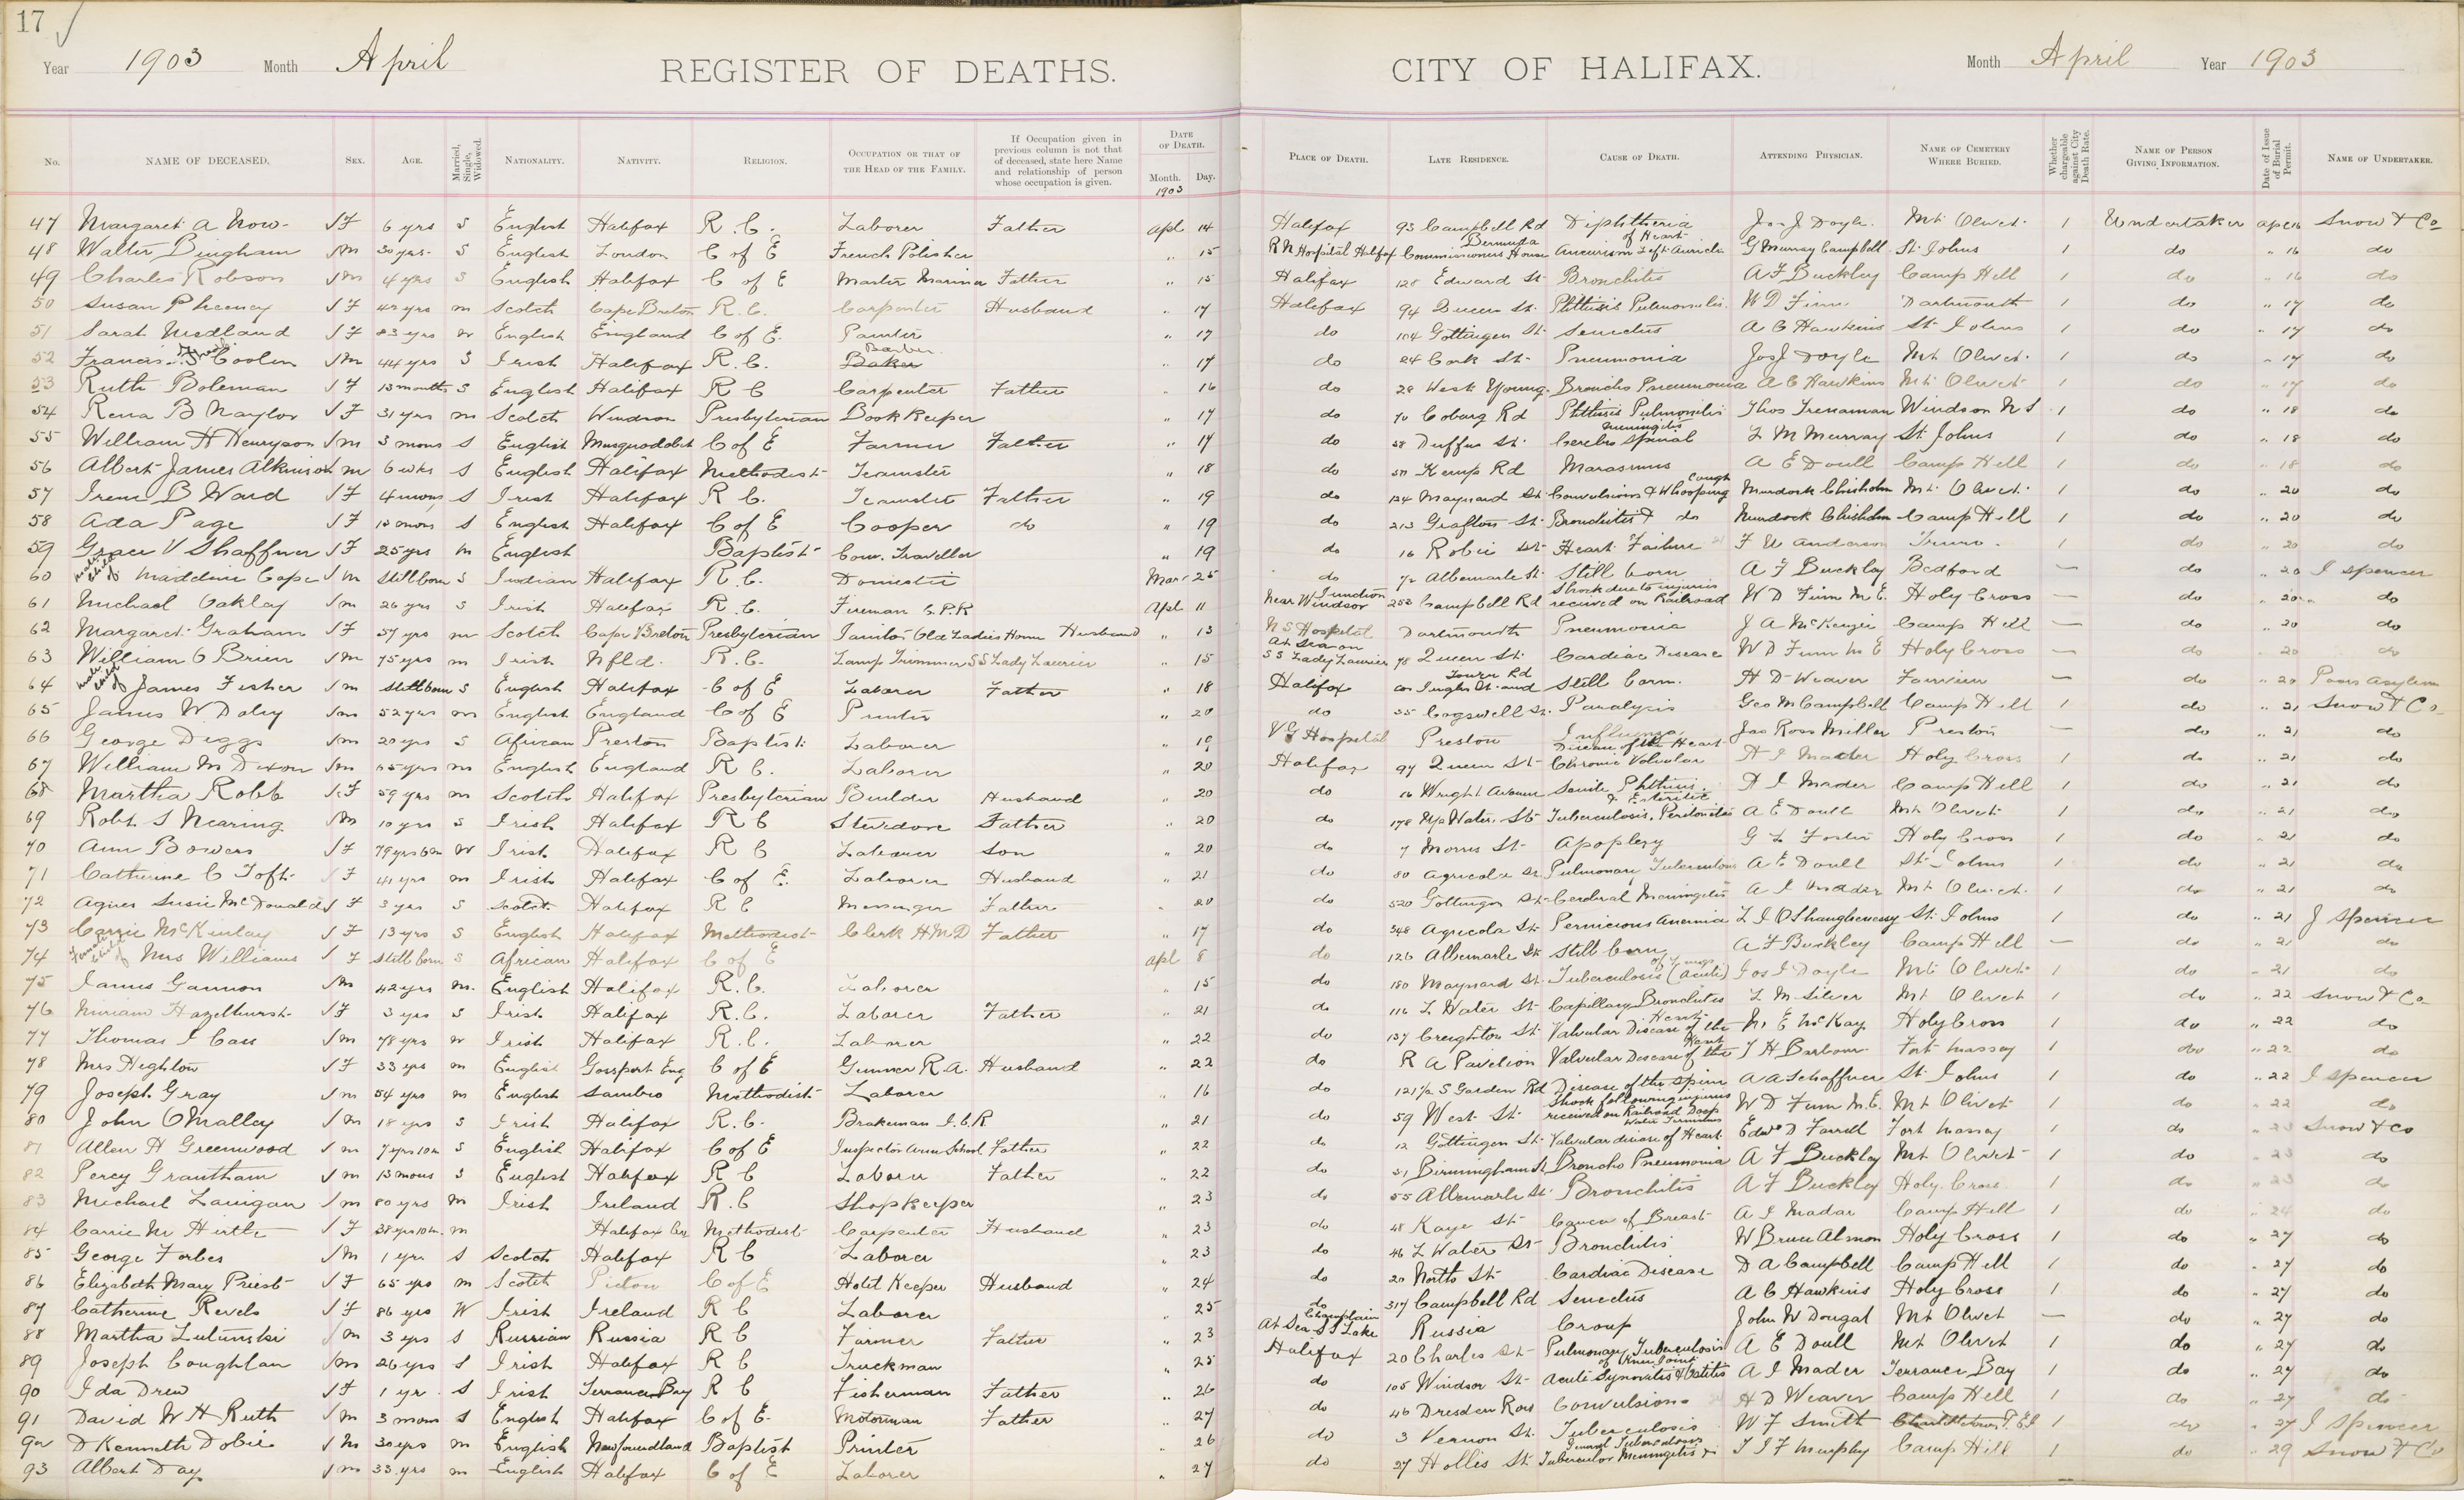 17
Year 1903 Month April REGISTER OF DEATHS. CITY OF HALIFAX. Month April Year 1903
No. NAME OF DECEASED. SEX. AGE. Married, Single, Widowed. NATIONALITY. NATIVITY. RELIGION. OCCUPATION OR THAT OF THE HEAD OF THE FAMILY. If Occupation given in previous column is not that of deceased, state here Name and relationship of person whose occupation is given. DATE OF DEATH. Month. 1903 Day. PLACE OF DEATH. LATE RESIDENCE. CAUSE OF DEATH. ATTENDING PHYSICIAN. NAME OF CEMETERY WHERE BURIED. Whether chargeable against City Death Rate. NAME OF PERSON GIVING INFORMATION. Date of Issue of Burial Permit. NAME OF UNDERTAKER.
47 Margaret A F 6 yrs S English Halifax R.C. Laborer Father Apl 14 Halifax 93 Campbell Rd Diphtheria Jos J Doyle Mt Olivet 1 Undertaker Snow & Co
48 Walter Bingham M 30 yrs S English London C of E French Polisher " 15 R N Hospital Halifax Commissioners House Bermuda Aneurism of Heart Left Auricle G Murray Campbell St Johns 1 do " 16 do
49 Charles Robson M 4 yrs S English Halifax C of E Master Mariner Father " 15 Halifax 128 Edward St Bronchitis A F Buckley Camp Hill 1 do " 16 do
50 Susan P F yrs m Scotch Cape Breton R.C. Carpenter Husband " 17 Halifax 94 Queen St. Phthisis Pulmonalis W D Finn Dartmouth 1 do " 17 do
51 Sarah Medland F 83 yrs W English England C of E. Painter " 17 do 104 Gottingen St Senectus A C Hawkins St Johns 1 do " 17 do
52 Francis Coolen M 44 yrs S Irish Halifax R.C. Baker Barber " 17 do 24 Cork St Pneumonia Jos J Doyle Mt Olivet 1 do " 17 do
53 Ruth Boleman F 13 months S English Halifax R C Carpenter Father " 16 do 28 West Young Broncho Pneumonia A C Hawkins Mt Olivet 1 do " 17 do
54 Rena B Naylor F 31 yrs m Scotch Windsor Presbyterian Book Keeper " 17 do 70 Coburg Rd Phthisis Pulmonalis Thos Trenaman Windsor N S 1 do " 18 do
55 William H Henryson m 3 mons S English Musquodobit C of E Farmer Father " 17 do 58 Duffus St. Cerebro Spinal Meningitis L M Murray St Johns 1 do " 18 do
56 Albert James Atkinson m 6 wks S English Halifax Methodist Teamster " 18 do Kemp Rd Marasmus A E Doull Camp Hill 1 do " 18 do
57 Irene B Ward F 4 mons S Irish Halifax R C. Teamster Father " 19 do 124 Maynard St Convulsions & Whooping Cough Murdock Chisholm Mt Olivet 1 do " 20 do
58 Ada Page F mons S English Halifax C of E Cooper do " 19 do 213 Grafton St Bronchitis & do Murdock Chisholm Camp Hill 1 do " 20 do
59 Grace V Shaffner F 25 yrs m English Baptist Com. Traveller " 19 do 16 Robie St Heart Failure F U Anderson Truro 1 do " 20 do
60 male child of Madeline Cope M Still born S Indian Halifax R.C. Domestic Mar 25 do Albemarle St Still born A F Buckley Bedford — do " 20 J Spencer
61 Michael Oakley m 26 yrs S Irish Halifax R.C. Fireman C.P.R Apl 11 Near Windsor Junction 253 Campbell Rd Shock due to injuries received on Railroad W D Finn M.E. Holy Cross — do " 20 do
62 Margaret Graham F 57 yrs m Scotch Cape Breton Presbyterian Janitor Old Ladies Home Husband " 13 N S Hospital Dartmouth Pneumonia J A McKenzie Camp Hill — do " 20 do
63 William O Brien M 75 yrs m Irish Nfld. R.C. Lamp Trimmer S S Lady Laurier " 15 At Sea on S S Lady Laurier 78 Queen St. Cardiac Disease W D Finn M E Holy Cross — do " 20 do
64 male child of James Fisher m Still born S English Halifax C of E Laborer Father " 18 Halifax cor Inglis St. and Tower Rd Still born. H D Weaver Fairview — do " 20 Poors Asylum
65 James W Daley m 52 yrs m English England C of E Printer " 20 do 35 Cogswell St. Paralysis Geo M Campbell Camp Hill 1 do " 21 Snow & Co
66 George Diggs m 20 yrs S African Preston Baptist Laborer " V G Hospital Preston Influenza Jas Ross Miller Preston — do " 21 do
67 William M Dixon m 65 yrs m English England R C. Laborer " 20 Halifax 97 Queen St Disease of the Heart Chronic Valvular A I Mader Holy Cross 1 do " 21 do
68 Martha Robb F 59 yrs m Scotch Halifax Presbyterian Builder Husband " 20 do 16 Wright Avenue Senile Phthisis A I Mader Camp Hill 1 do " 21 do
69 Robt S Nearing m 10 yrs S Irish Halifax R C Stevedore Father " 20 do 178 Up Water St Tuberculosis, Peritonitis & Enteritis A E Doull Mt Olivet 1 do " 21 do
70 Ann Bowers F 79 yrs 6m W Irish Halifax R C Laborer Son " 20 do 7 Morris St Apoplexy G L Foster Holy Cross 1 do " 21 do
71 Catherine C Toft F 41 yrs m Irish Halifax C of E. Laborer Husband " 21 do 80 Agricola St Pulmonary Tuberculosis A E Doull St Johns 1 do " 21 do
72 Agnes Susie McDonald F 3 yrs S Scotch Halifax R C Messenger Father " 20 do 520 Gottingen St Cerebral Meningitis A I Mader Mt Olivet 1 do " 21 do
73 Carrie McKinlay F 13 yrs S English Halifax Methodist Clerk H M D Father " 17 do 348 Agricola St Pernicious Anemia L I O'Shaughnessy St Johns 1 do " 21 J Spencer
74 Female child of Mrs Williams F Still born S African Halifax C of E Apl 8 do 126 Albemarle St Still born A F Buckley Camp Hill — do " 21 do
75 James Gannon m 42 yrs m. English Halifax R.C. Laborer " 15 do 180 Maynard St. Tuberculosis of Lungs (acute) Jos J Doyle Mt Olivet 1 do " 21 do
76 Miriam Hazelhurst F 3 yrs S Irish Halifax R.C. Laborer Father " 21 do 116 L Water St Capillary Bronchitis L M Silver Mt Olivet 1 do " 22 Snow & Co
77 Thomas J Cass m 78 yrs W Irish Halifax R.C. Laborer " 22 do 137 Creighton St Valvular Disease of the Heart M E McKay Holy Cross 1 do " 22 do
78 Mrs Highton F 33 yrs m English Gossport Eng C of E Gunner R.A. Husband " 22 do R A Pavelion Valvular Disease of the Heart J H Barbour Fort Massey 1 do " 22 do
79 Joseph Gray m 54 yrs m English Sambro Methodist Laborer " 16 do 121½ S Garden Rd Disease of the Spine A A Schaffner St Johns 1 do " 22 J Spencer
80 John OMalley m 18 yrs S Irish Halifax R.C. Brakeman I.C.R " 21 do 59 West St Shock following injuries received on Railroad Deep Water Terminus W D Finn M.E. Mt Olivet 1 do " 22 do
81 Allen H Greenwood m 7 yrs 10m S English Halifax C of E Inspector Ann School Father " 22 do 12 Gottingen St. Valvular disease of Heart Edwd D Farrell Fort Massey 1 do " 23 Snow & Co
82 Percy Grantham m 13 mons S English Halifax R C Laborer Father " 22 do 51 Birmingham St Broncho Pneumonia A F Buckley Mt Olivet 1 do " 23 do
83 Michael Lanigan m 80 yrs m Irish Ireland R.C Shopkeeper " 23 do 55 Albemarle St. Bronchitis A F Buckley Holy Cross 1 do " 23 do
84 Carrie M Hirtle F 38 yrs 10m. m Halifax Co Methodist Carpenter Husband " 23 do 48 Kaye St Cancer of Breast A I Mader Camp Hill 1 do " 24 do
85 George Forbes m 1 yr S Scotch Halifax R C Laborer " 23 do 46 L Water St Bronchitis W Bruce Almon Holy Cross 1 do " 27 do
86 Elizabeth Mary Priest F 65 yrs m Scotch Pictou C of E Hotel Keeper Husband " 24 do 20 North St Cardiac Disease D A Campbell Camp Hill 1 do " 27 do
87 Catherine Revels F 86 yrs W Irish Ireland R C Laborer " 25 do 317 Campbell Rd Senectus A C Hawkins Holy Cross 1 do " 27 do
88 Martha Lulinski m 3 yrs S Russian Russia R C Farmer Father " 23 At Sea S S Lake Champlain Russia Croup John W Dougal Mt Olivet — do " 27 do
89 Joseph Coughlan m 26 yrs S Irish Halifax R C Truckman " 25 Halifax 20 Charles St Pulmonary Tuberculosis A E Doull Mt Olivet 1 do " 27 do
90 Ida Drew F 1 yr S Irish Terrance Bay R C Fisherman Father " 26 do 105 Windsor St Acute Synovitis & Ostitis of Knee Joint A I Mader Terrance Bay 1 do " 27 do
91 David W H Ruth m 3 mons S English Halifax C of E Motorman Father " 27 do 46 Dresden Row Convulsions H D Weaver Camp Hill 1 do " 27 do
92 D Kenneth Dobie m 30 yrs m English Newfoundland Baptist Printer " 26 do 3 Vernon St. Tuberculosis W F Smith Charlottetown P.E.I 1 do " 27 J Spencer
93 Albert Day m 33 yrs m English Halifax C of E Laborer " 27 do 27 Hollis St Tubercular Meningitis & General Tuberculosis J J F Murphy Camp Hill 1 do " 29 Snow & Co